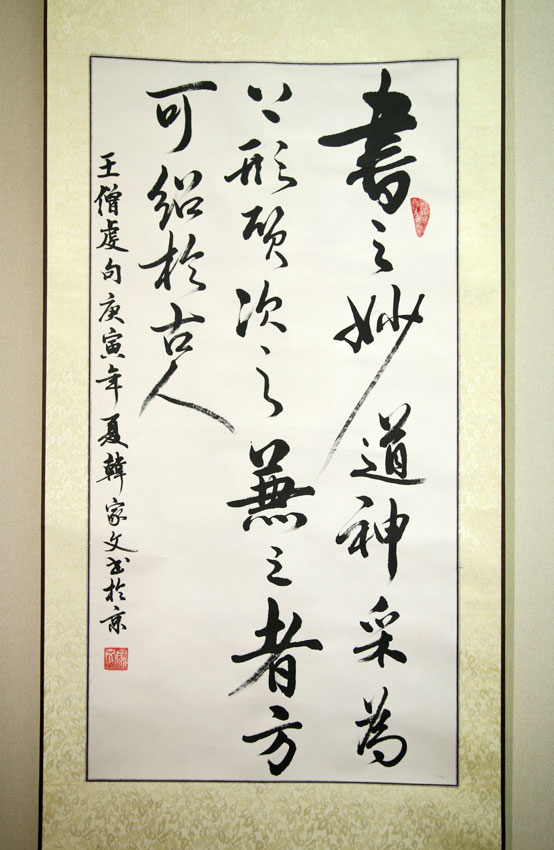 書之妙道神采為
上形質次之兼之者方
可紹於古人
王僧虔句庚寅年夏韓家文书於京